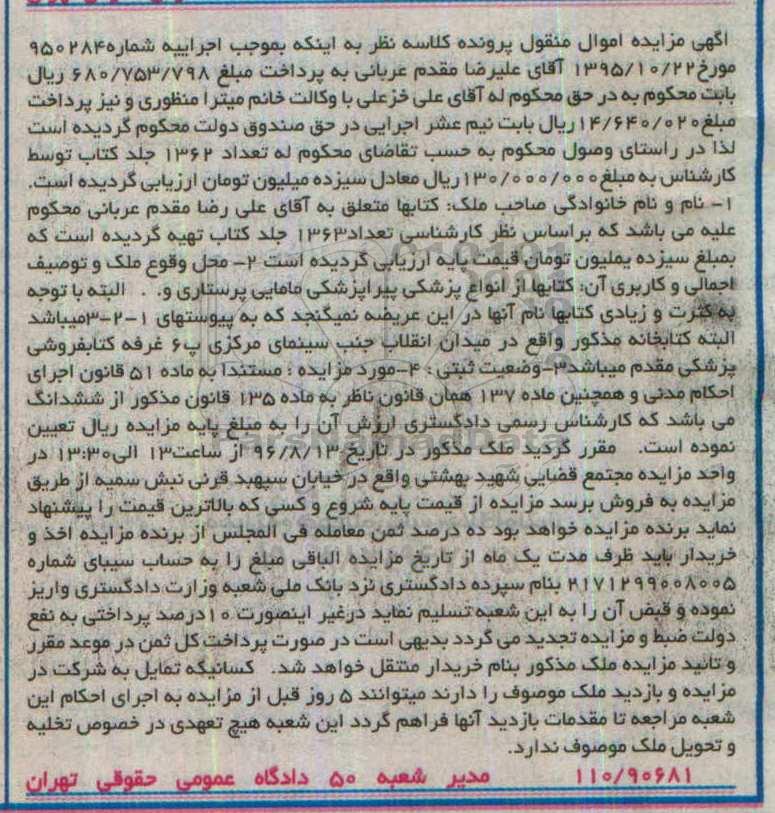 آگهی مزایده اموال منقول پرونده کلاسه نظر به اینکه بموجب اجراییه شماره۹۵۰۲۸۴
مورخ۱۳۹۵/۱۰/۲۲ آقای علیرضا مقدم عربانی به پرداخت مبلغ ۶۸۰/۷۵۳/۷۹۸ ریال
بابت محکوم به در حق محکوم له آقای علی خزعلی با وکالت خانم میترا منظوری و نیز پرداخت
مبلغ۱۴/۶۴۰/۰۲۰ریال بابت نیم عشر اجرایی در حق صندوق دولت محکوم گردیده است
لذا در راستای وصول محکوم به حسب تقاضای محکوم له تعداد ۱۳۶۲ جلد کتاب توسط
کارشناس به مبلغ۱۳۰/۰۰۰/۰۰۰ریال معادل سیزده میلیون تومان ارزیابی گردیده است.
۱- نام و نام خانوادگی صاحب ملک: کتابها متعلق به آقای علی رضا مقدم عربانی محکوم
علیه می باشد که براساس نظر کارشناسی تعداد۱۳۶۳ جلد کتاب تهیه گردیده است که
بمبلغ سیزده یملیون تومان قیمت پایه ارزیابی گردیده است ۲- محل وقوع ملک و توصیف
اجمالی و کاربری آن: کتابها از انواع پزشکی پیراپزشکی مامایی پرستاری و. . البته با توجه
به کثرت و زیادی کتابها نام آنها در این عریضه نمیگنجد که به پیوستهای ۱-۲-۳میباشد
البته کتابخانه مذکور واقع در میدان انقلاب جنب سینمای مرکزی پ۶ غرفه کتابفروشی
پزشکی مقدم میباشد۳-وضعیت ثبتی : ۴-مورد مزایده : مستندا به ماده ۵۱ قانون اجرای
احکام مدنی و همچنین ماده ۱۳۷ همان قانون ناظر به ماده ۱۳۵ قانون مذکور از ششدانگ
می باشد که کارشناس رسمی دادگستری ارزش آن را به مبلغ پایه مزایده ریال تعیین
نموده است. مقرر گردید ملک مذکور در تاریخ ۹۶/۸/۱۳ از ساعت۱۳ الی۱۳:۳۰ در
واحد مزایده مجتمع قضایی شهید بهشتی واقع در خیابان سپهبد قرنی نبش سمیه از طریق
مزایده به فروش برسد مزایده از قیمت پایه شروع و کسی که بالاترین قیمت را پیشنهاد
نماید برنده مزایده خواهد بود ده درصد ثمن معامله فی المجلس از برنده مزایده اخذ و
خریدار باید ظرف مدت یک ماه از تاریخ مزایده الباقی مبلغ را به حساب سیبای شماره
۲۱۷۱۲۹۹۰۰۸۰۰۵ بنام سپرده دادگستری نزد بانک ملی شعبه وزارت دادگستری واریز
نموده و قبض آن را به این شعبه تسلیم نماید درغیر اینصورت ۱۰درصد پرداختی به نفع
دولت ضبط و مزایده تجدید می گردد بدیهی است در صورت پرداخت کل ثمن در موعد مقرر
و تائید مزایده ملک مذکور بنام خریدار منتقل خواهد شد. کسانیکه تمایل به شرکت در
مزایده و بازدید ملک موصوف را دارند میتوانند ۵ روز قبل از مزایده به اجرای احکام این
شعبه مراجعه تا مقدمات بازدید آنها فراهم گردد این شعبه هیچ تعهدی در خصوص تخلیه
و تحویل ملک موصوف ندارد.
۱۱۰/۹۰۶۸۱ مدیر شعبه ۵۰ دادگاه عمومی حقوقی تهران